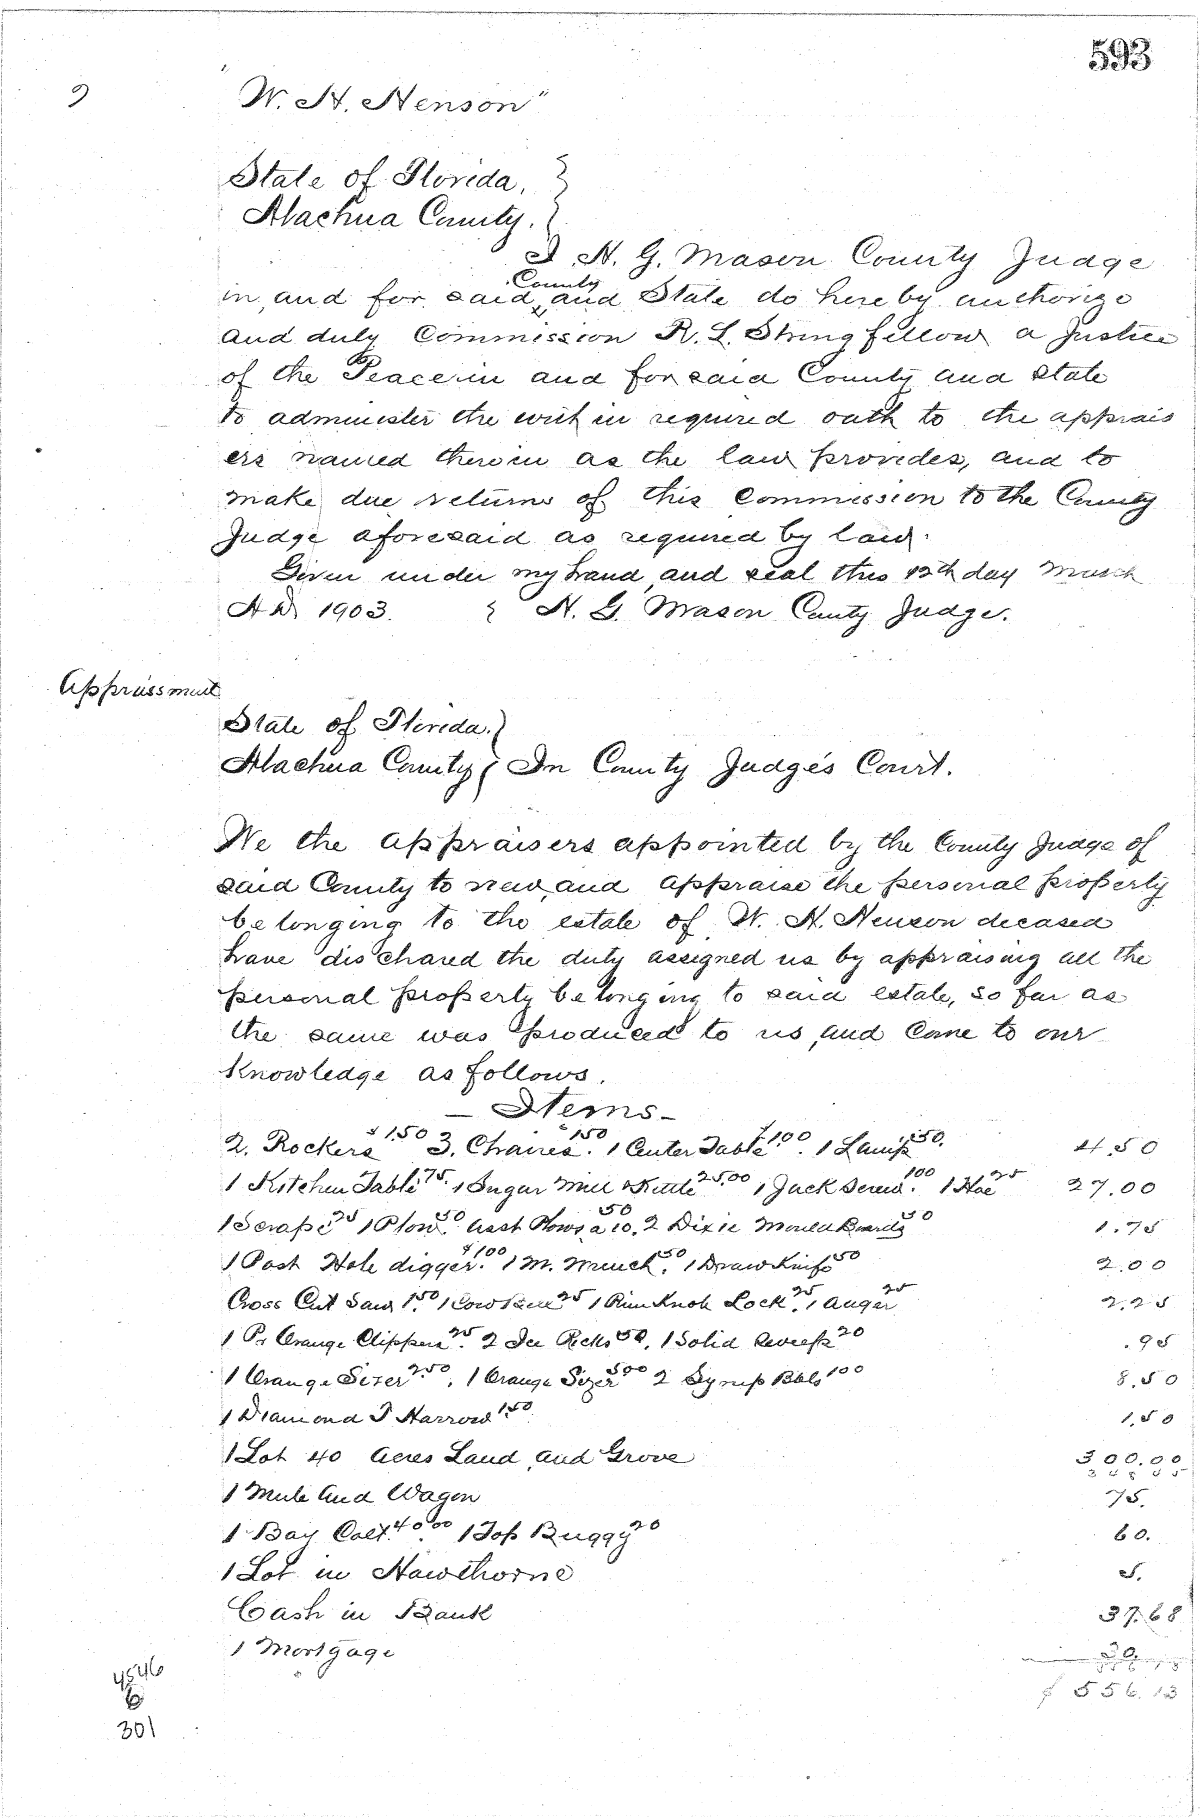 593
W. H. Henson"
State of Florida,
Alachua County.
I H. G. Mason County Judge
County
in, and for said, and State do hereby authorize
and duly Commission R. L. Stringfellow a Justice
of the Peace in and for said County and State
to administer the within required oath to the apprais
ers named therein as the law provides, and to
make due returns of this Commission to the County
Judge aforesaid as required by law.
Given under my hand and seal this 12th day March
A D 1903. H. G. Mason County Judge.
Appraissment
State of Florida.
Alachua County In County Judge's Court.
We the appraisers appointed by the County Judge of
said County to view, and appraise the personal property
belonging to the estate of W. H. Henson decased
have dischared the duty assigned us by appraising all the
personal property belonging to said estate, so far as
the same was produced to us, and Come to our
Knowledge as follows.
— Items —
2. Rockers $1.50 3. Chaires. 150 1 Center Table 1.00. 1 Lamp .50. 4.50
1 Kitchen Table 75. 1 Sugar Mill & Kettle 25.00 1 Jack Screw. 100 1 Hoe 25 27.00
1 Scrape 25 1 Plow 50 Asst Plows 50 2 Dixie Mould Boards 50 1.75
1 Post Hole digger. $1.00 1 M. Wrench. 50 1 Draw Knife 50 2.00
Cross Cut Saw 1.50 1 Cow 25 1 Rim Knob Lock. 25 1 Auger 25 2.25
1 Pr Orange Clippers 25. 2 Ice Picks 50. 1 Solid Sweep 20 .95
1 Orange Sizer 2.50. 1 Orange Sizer 500 2 Syrup Bbls 100 8.50
1 Diamond T Harrow 1.50 1.50
1 Lot 40 Acres Land, and Grove 300.00
1 Mule and Wagon 75.
1 Bay Colt 40.00. 1 Top Buggy 20 60.
1 Lot in Hawthorne 5.
Cash in Bank 37.68
1 Mortgage 30.
$ 556.13
4546
6
301